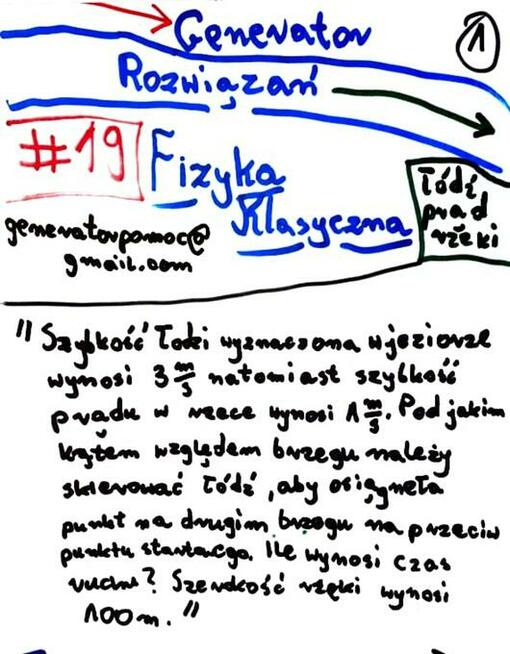 Generator
1
Rozwiązań
#19
Fizyka
Klasyczna
łódź
prąd
rzeki
generatorpomoc@
gmail.com
"Szybkość łodzi wyznaczona w jeziorze
wynosi 3 m/s natomiast szybkość
prądu w rzece wynosi 1 m/s. Pod jakim
kątem względem brzegu należy
skierować łódź, aby osiągnęła
punkt na drugim brzegu na przeciw
punktu startowego. Ile wynosi czas
ruchu? Szerokość rzeki wynosi
100m."